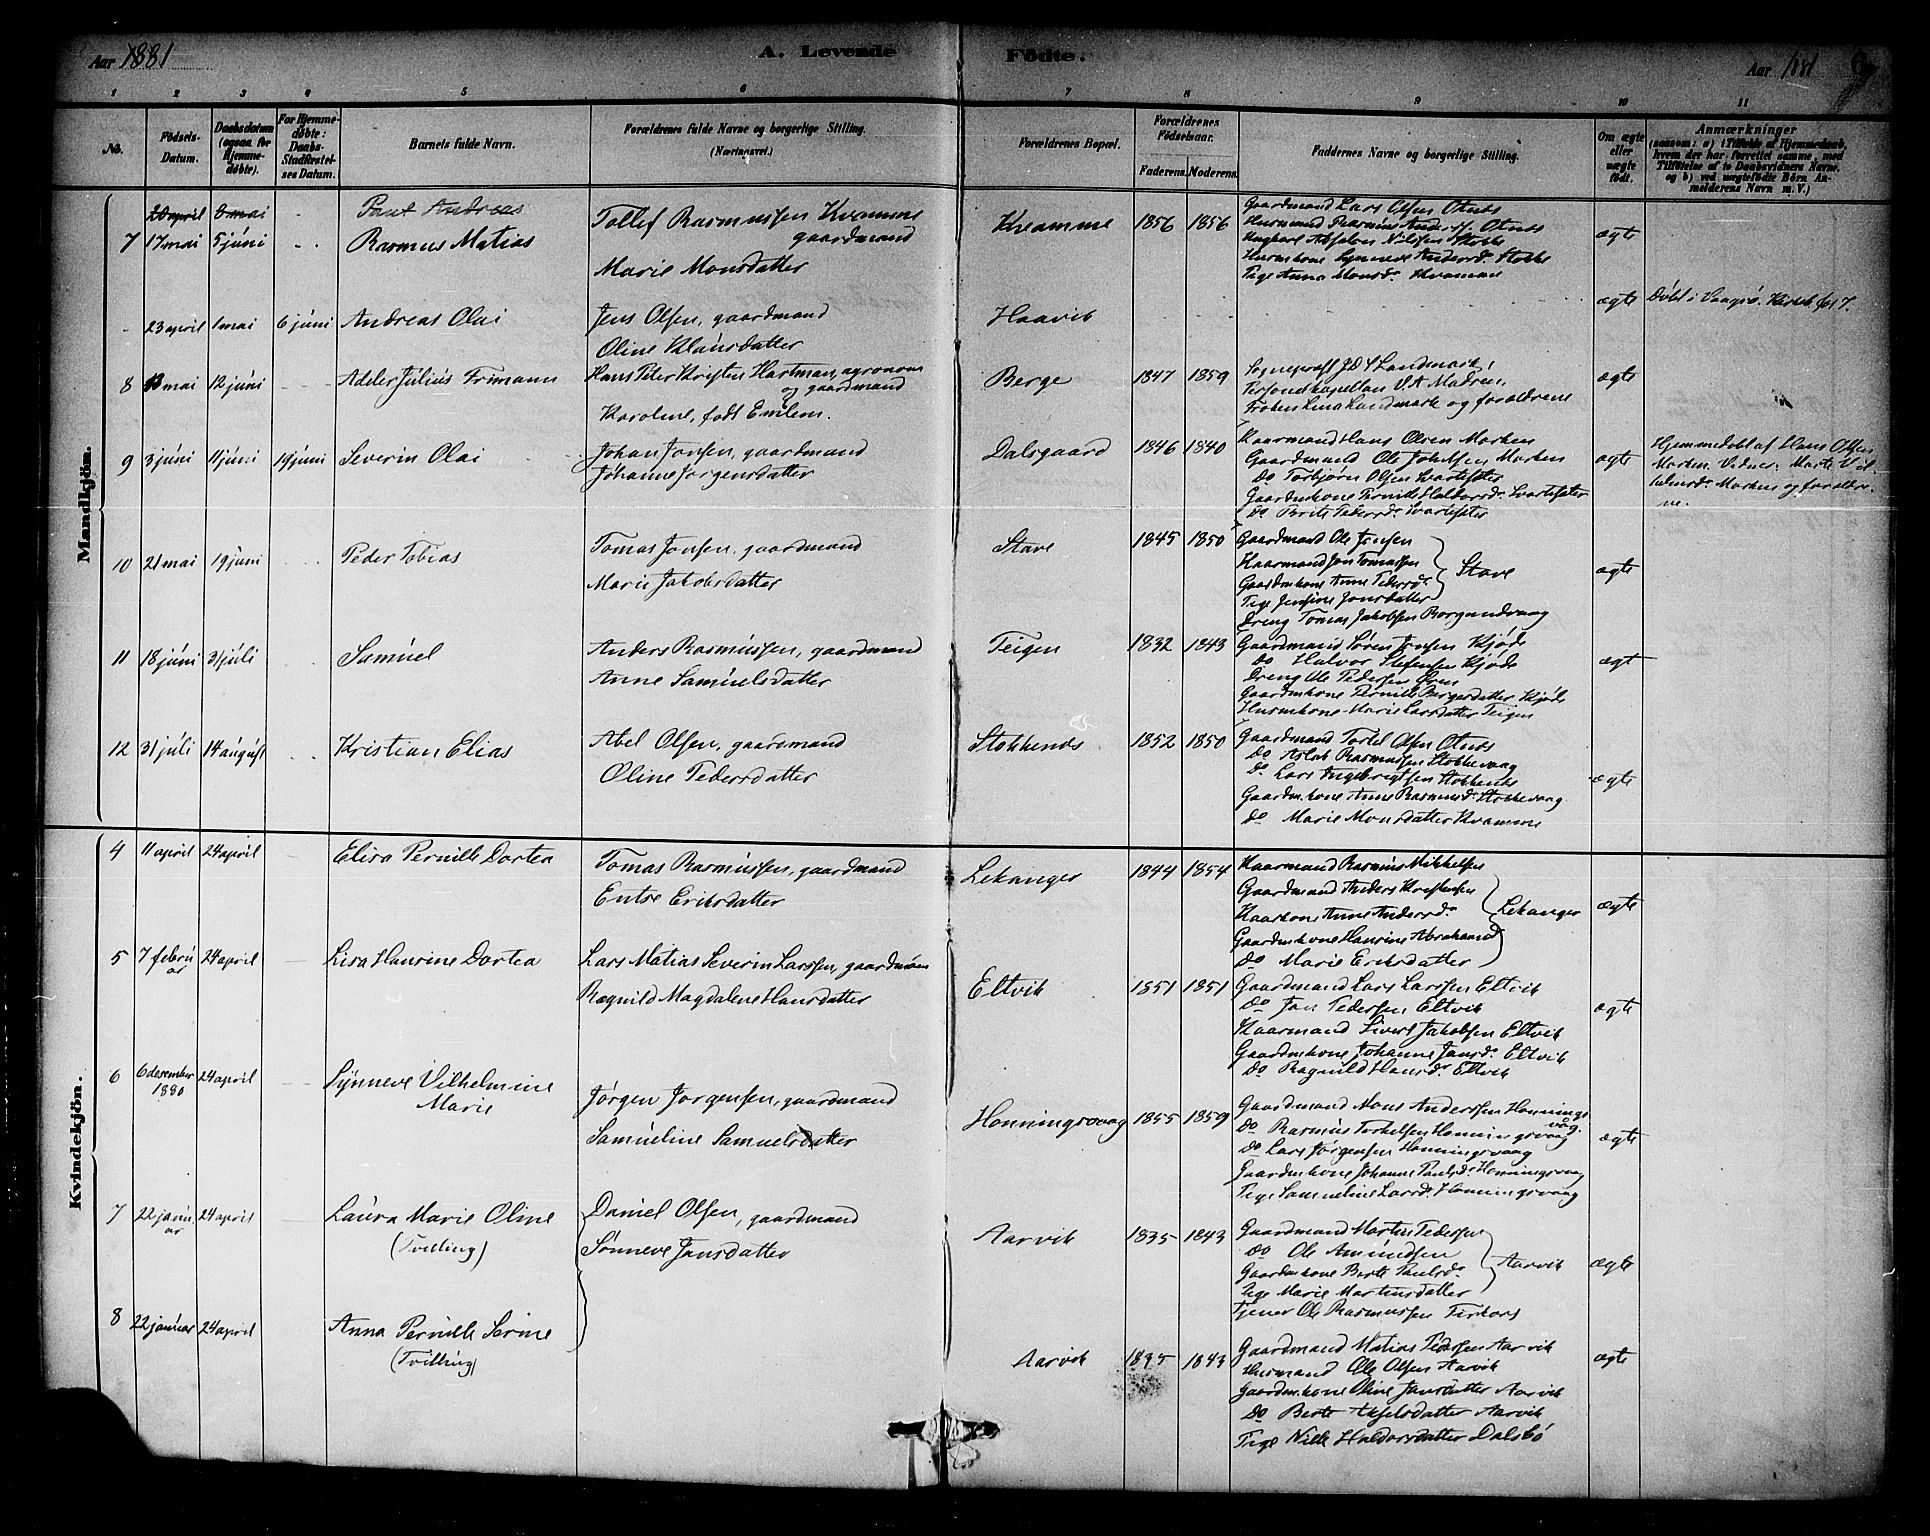 Aar 1881
A. Levende Födte.
Aar 1881
1 2 3 4 5 6 7 8 9 10 11
No.
Födsels-Datum.
Daabsdatum (ogsaa for Hjemme-døbte).
For Hjemme-døbte: Daabs-Stadfæstel-ses Datum.
Barnets fulde Navn.
Forældrenes fulde Navne og borgerlige Stilling.
(Næringsvei.)
Forældrenes Bopæl.
Forældrenes Födselsaar.
Faderens. Moderens.
Faddernes Navne og borgerlige Stilling.
Om ægte eller uægte födt.
Anmærkninger
(saasom: a) i Tilfælde af Hjemmedaab,
hvem der har forrettet samme, med
Tilföielse af to Daabsvidners Navne,
og b) ved uægtefødte Börn An-
melderens Navn m. V.)
Mandkjön.
20 april 8 mai Paul Andreas
7 17 mai 5 júni Rasmus Matias
Tollef Rasmussen Kvamme
gaardmand
Marie Monsdatter
Kvamme 1856 1856
Gaardmand Lars Olsen Otnes
Husmand Rasmus Anderss. Otnes
Ungkarl Absalon Nilssen Stokke
Husmkone Synneve Andersd. Stokke
Pige Anna Monsd. Kvamme
ægte
23 april 1 mai 6 júni Andreas Olai
Jens Olsen, gaardmand
Oline Klausdatter
Haavik
ægte
Döbt i Vaagsö Kirke
8 13 mai 12 júni Adeler Julius Frimann
Hans Peter Kristen Hartman, agronom
og gaardmand
Karoline, födt Emlem.
Berge 1847 1859
Sogneprest J D S Landmark,
Personelkapellan V. A. Madsen,
Fröken Lina Landmark og forældrene
ægte
9 3 júni 11 júni 19 júni Severin Olai
Johan Jonsen, gaardmand
Johanne Jorgensdatter
Dalsgaard 1846 1840
Kaarmand Hans Olsen Morken
Gaardmand Ole Johnsen Morken
Do Torbjörn Olsen Svartefster
Gaardmkone Pernille Haldorsd. Svartefster
Do Berte Pedersd. Svartefster
ægte
Hjemmedöbt af Hans Olsen
Morken. Vidner: Marte Vil-
lumsd. Morken og forældre-
ne.
10 21 mai 19 juni Peder Tobias
Tomas Jonsen, gaardmand
Marie Jakobsdatter
Stave 1845 1850
Gaardmand Ole Jonsen
Kaarmand Jon Tomassen
Gaardmkone Anne Pedersd.
Pige Jensine Jonsdatter
Stave
Dreng Tomas Jakobsen Borgundvaag
ægte
11 18 júni 3 júli Samúel
Anders Rasmússen, gaardmand
Anne Samúelsdatter
Teigen 1832 1843
Gaardmand Sören Jensen Kjöde
Do Halvor Steffensen Kjöde
Dreng Ole Pedersen
Gaardmkone Pernille Börgesdatter Kjöde
Husmkone Marie Larsdatter Teigen
ægt
12 31 júli 14 august Kristian Elias
Abel Olsen, gaardmand
Oline Pedersdatter
Stokkenes 1852 1850
Gaardmand Torkel Olsen Otnes
Do Aslak Rasmussen Stokkevaag
Do Lars Ingebrigtsen Stokkenes
Gaardm.kone Anne Rasmusd. Stokkevaag
Do Marie Monsdatter Kvamme
ægte
Kvindekjön.
4 11 april 24 april Elisa Pernille Dortea
Tomas Rasmússen, gaardmand
Entse Eriksdatter
Lekanger 1844 1854
Kaarmand Rasmus Mikkelsen
Gaardmand Anders Kristensen
Kaarkone Anne Andersd.
Gaardmkone Hansine Abrahamsd
Do Marie Eriksdatter
Lekanger
ægte
5 7 febrú
ar
24 april Lisa Hansine Dortea
Lars Matias Severin Larssen, gaardman
Ragnild Magdalene Hansdatter
Eltvik 1851 1851
Gaardmand Lars Larssen Eltvik
Do Jan Pederssen Eltvik
Kaarmand Sivert Jakobsen Eltvik
Gaardmkone Johanne Jansd. Eltvik
Do Ragnild Hansd. Eltvik
ægte
6 6 desember
1880
24 april Synneve Vilhelmine
Marie
Jörgen Jorgensen, gaardmand
Samúeline Samuelsdatter
Honningsvaag 1855 1859
Gaardmand Mons Anderssen Honnings
vaag.
Do Rasmus Torkelsen Honningsvaag
Do Lars Jörgensen Honningsvaag
Gaardmkone Johanne Paulsd. Honningsvaag
Pige Samueline Larsd. Honningsvaag
ægte
7 22 janú
ar
24 april Laúra Marie Oline
(Tvilling)
Daniel Olsen, gaardmand
Sönneve Jansdatter
Aarvik 1835 1843
Gaardmand Martin Pedersen
Do Ole Amúndsen
Gaardmkone Berte Paulsd.
Pige Marie Martinusdatter
Aarvik
Tjener Ole Rasmussen
ægte
8 22 janúar 24 april Anna Pernille Serine
(Tvilling)
Aarvik 1835 1843
Gaardmand Matias Pedersen Aarvik
Husmand Ole Olsen Aarvik
Gaardmkone Oline Jansdatter Aarvik
Do Berte Akselsdatter Aarvik
Pige Nille Haldorsdatter Dalsbö
ægte